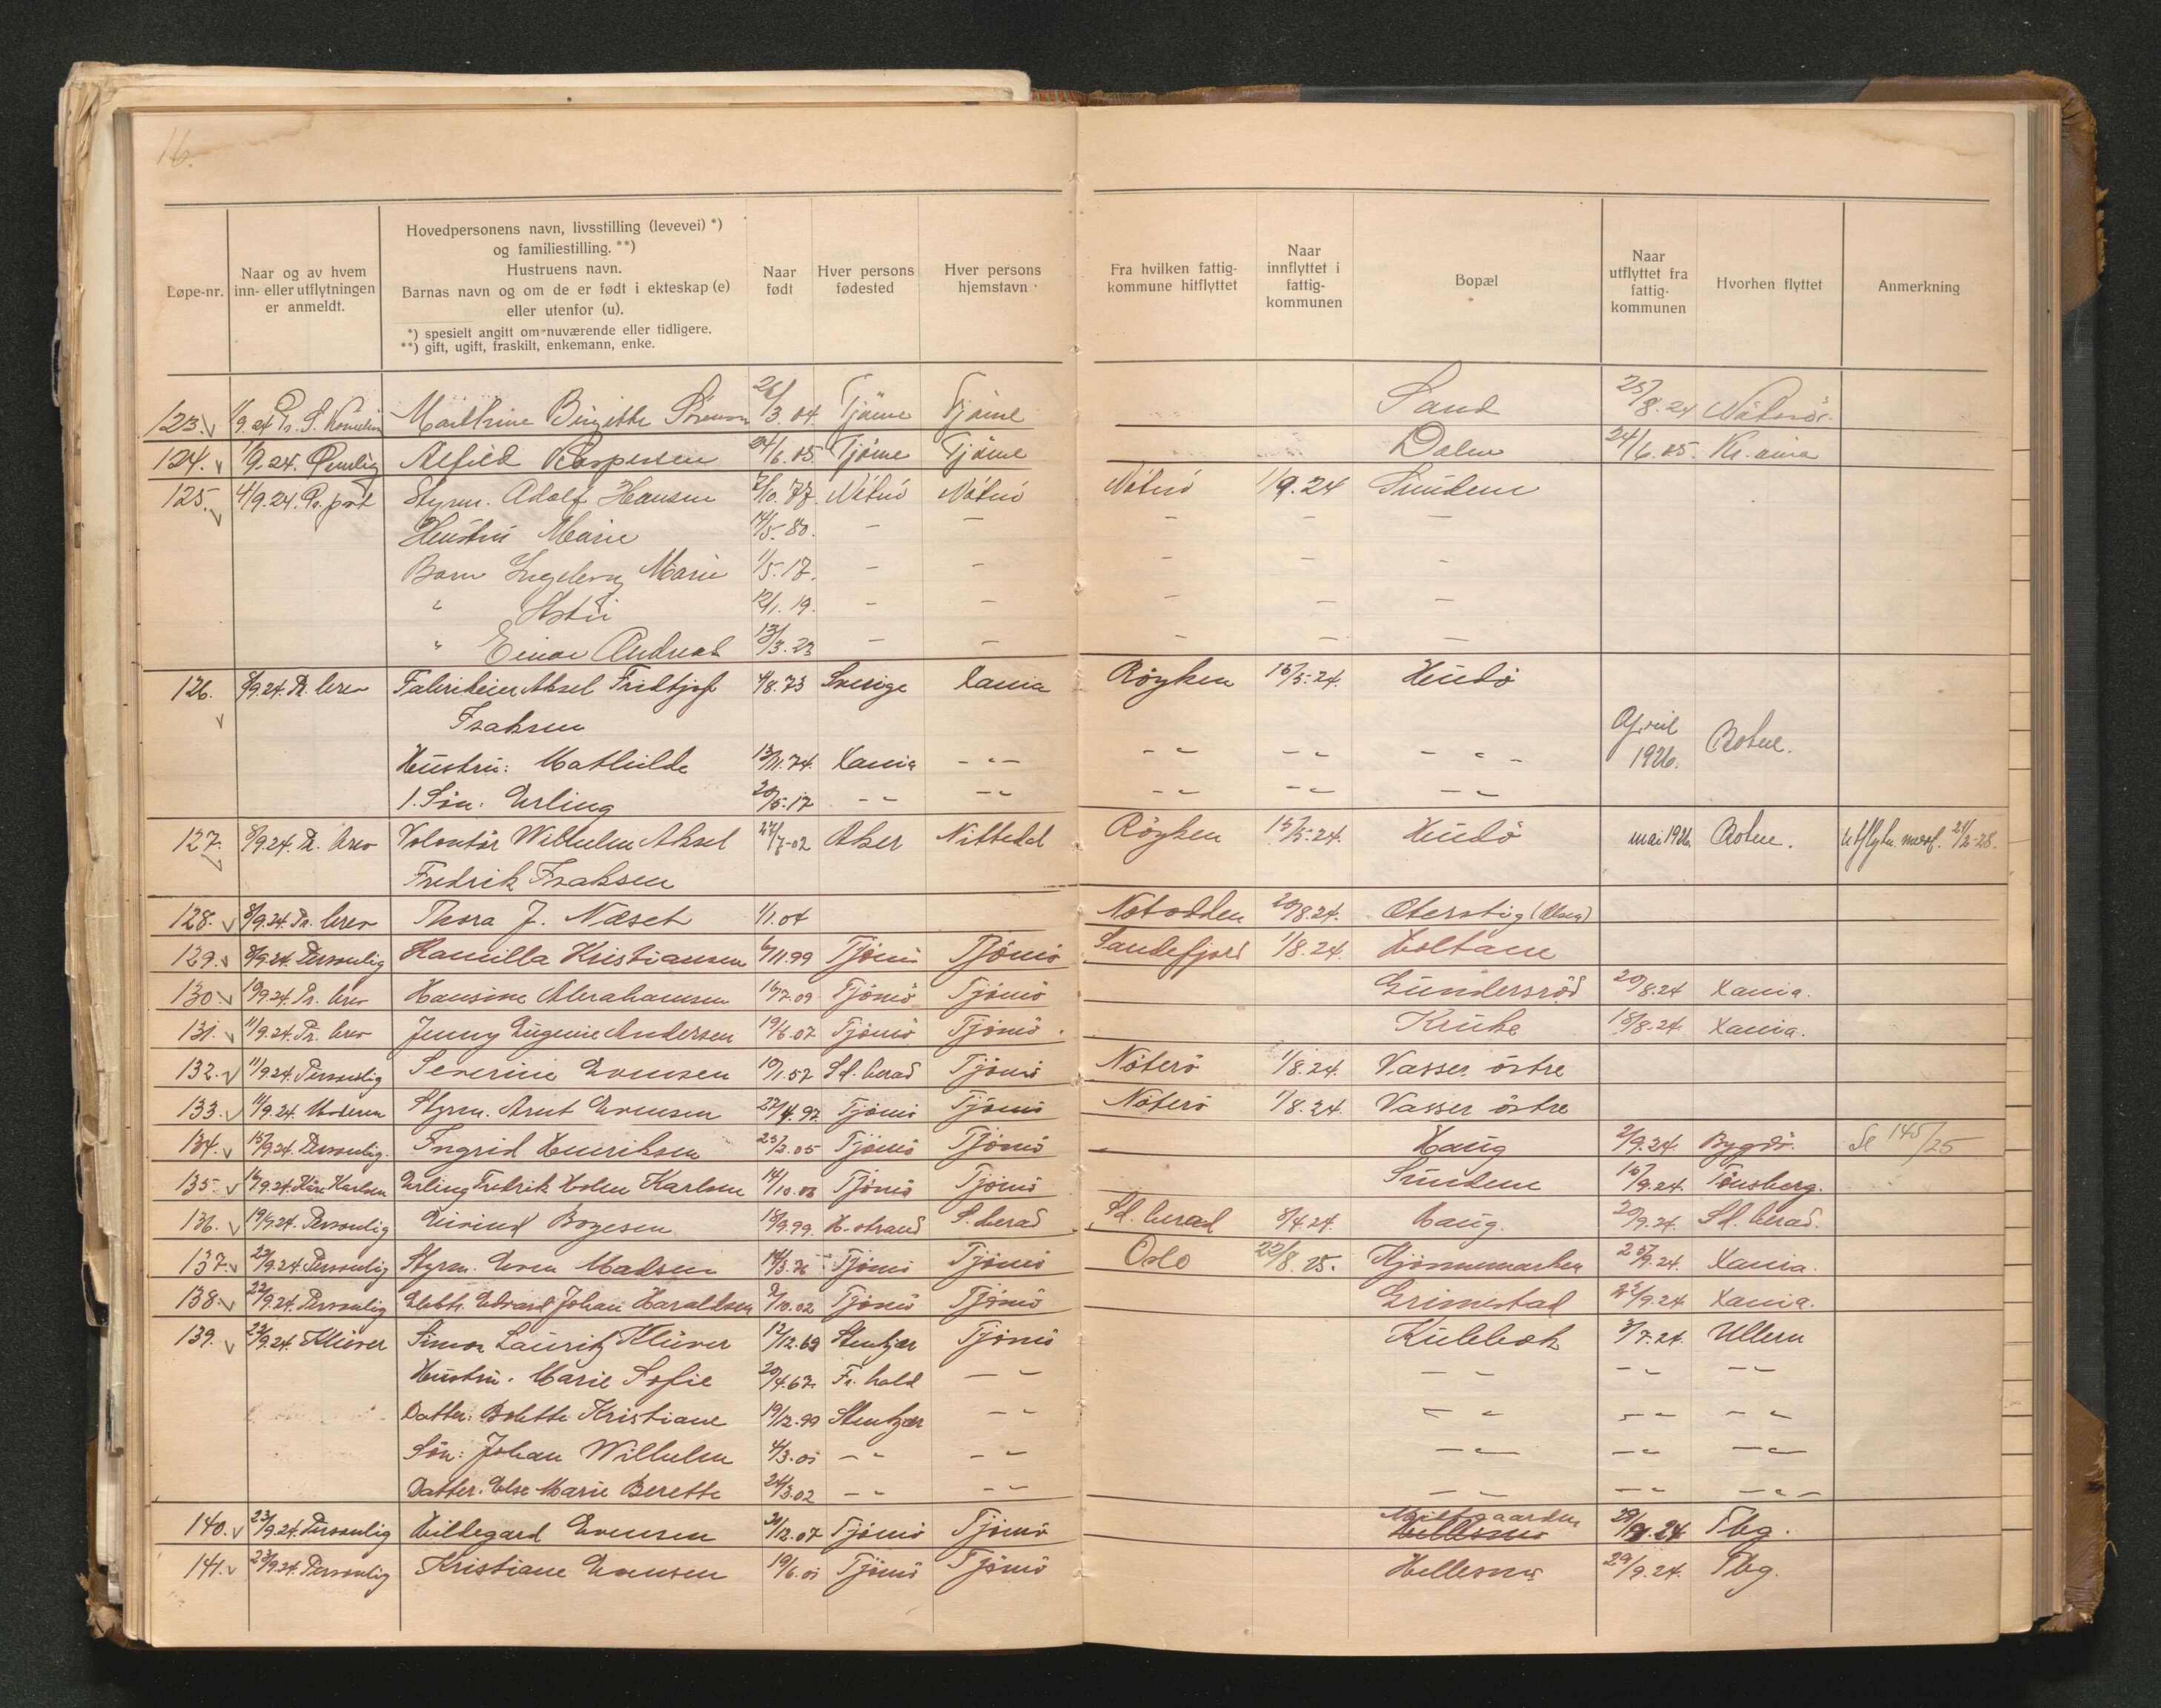 16.
Løpe-nr.
Naar og av hvem
inn- eller utflytningen
er anmeldt.
Hovedpersonens navn, livsstilling (levevei) *)
og familiestilling. **)
Hustruens navn.
Barnas navn og om de er født i ekteskap (e)
eller utenfor (u).
*) spesielt angitt om nuværende eller tidligere.
**) gift, ugift, fraskilt, enkemann, enke.
Naar
født
Hver persons
fødested
Hver persons
hjemstavn
Fra hvilken fattig-
kommune hitflyttet
Naar
innflyttet i
fattig-
kommunen
Bopæl
Naar
utflyttet fra
fattig-
kommunen
Hvorhen flyttet
Anmerkning
123. 1/9.24 Birgitte 26/3.04 Tjøme Tjøme Sand 25/8.24
124. 1/9.24. Tjøme Tjøme Dalen 24/6.05.
125. 4/9.24. Pr. post Styrm. Adolf Hansen 7/10.77. Nöterö Nöterö Nöterö 1/9.24 Sundene
Hustru Marie 14/5-80. - - - - -
Barn Ingeborg Marie 1/5.17. - - - - -
" 12/1.19. - - - - -
" Einar Andreas 13/3.23 - - - - -
126. 8/9.24. Pr. brev Aksel Fridtjof 4/8.73 Sverige Xania Röyken 15/5-24. Hudö
Isaksen April
Hustru: Mathilde 13/11.74. Xania - " - - " - " - " - 1926. Botne.
1. Sön: Erling 20/5-17 - " - " - " - " - "
127. 8/9.24. Pr. brev Volontör Wilhelm Aksel 27/7-02 Aker Nittedal Röyken 15/5-24. Hudö mai 1926. Botne. 21/2-28.
Fredrik Isaksen
128. 8/9.24. Pr. brev Thora J. Næset 1/1.04 Notodden 20/8.24.
129. 8/9.24. Personlig Hamilla Kristiansen 6/11.99 Tjömö Tjömö Sandefjord 1/8.24. Holtane
130. 10/9.24. Pr. brev Hansine Abrahamsen 16/7.09 Tjömö Tjömö Gundersröd 20/8.24 Xania.
131. 11/9.24. Pr. brev Jenny Eugenie Andersen 19/6.07 Tjömö Tjömö Kruke 18/8.24. Xania.
132. 11/9.24. Personlig Severine Evensen 10/1.57 Sd. herad Tjömö Nöterö 1/8.24. Vasser östre
133. 11/9.24. Moderen Styrm. Arnt Evensen 27/4.97. Tjömö Tjömö Nöterö 1/8.24. Vasser östre
134. 15/9.24. Personlig. Ingrid Henriksen 25/2.05 Tjömö Tjömö Haug 2/9.24. Bygdö. Se 145/25
135. 16/9.24. Karlsen Erling Fredrik Holm Karlsen 14/10.08 Tjömö Tjömö Sundene 15/9.24. Tönsberg.
136. 19/9.24. Personlig Eivind Bogesen 18/9.99 H.strand S.herad Sd. herad 8/4.24. Haug. 20/9.24. Sd. herad.
137. 22/9.24. Personlig Styrm. Even Madsen 14/3.76 Tjömö Tjömö Oslo 22/8.25. Kjönnemarken 25/9.24. Xania.
138. 22/9.24. Personlig Elektr. Edvard Johan Haraldsen 7/10.02 Tjömö Tjömö Grimestad 22/9.24 Xania.
139. 22/9.24. Klüver Simon Lauritz Klüver 17/12.69 Stenkjær Tjömö Kulebok 3/7.24. Ullern
Hustru. Marie Sofie 20/4.67. Fr. hald - " - " - " - "
Datter: Bolette Kristiane 19/12.99 Stenkjær - " - " - " - "
Sön: Johan Wilhelm 4/3.01 - " - " - " - " - "
Datter. Else Marie Berette 24/3.02 - " - " - " - " - "
Midtgaarden
140. 23/9.24. Personlig Hildegard Evensen 30/12.07 Tjömö Tjömö Hellesmo 29/9.24 Tbg.
141. 23/9.24. Personlig Kristiane Evensen 19/6.01 Tjömö Tjömö Hellesmo 29/9.24. Tbg.